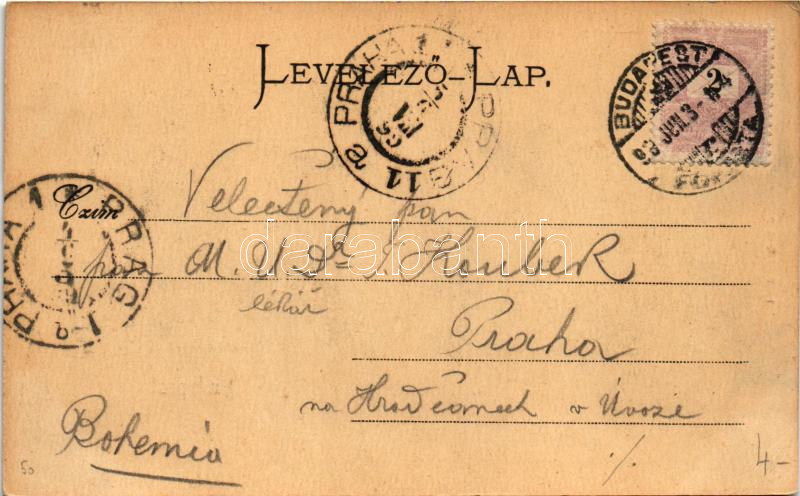 LEVELEZŐ-LAP.
BUDAPEST
98 JUN. 3
FŐPOSTA
2
PRAHA 1
PRAG
11 a
Czím
PRAHA 1
PRAG
1-a
Velectěný pan
pan M. U. Dr. J. Houbek
lékař
Praha
na Hradčanech v Úvoze
Bohemia
darabanth
50
4-